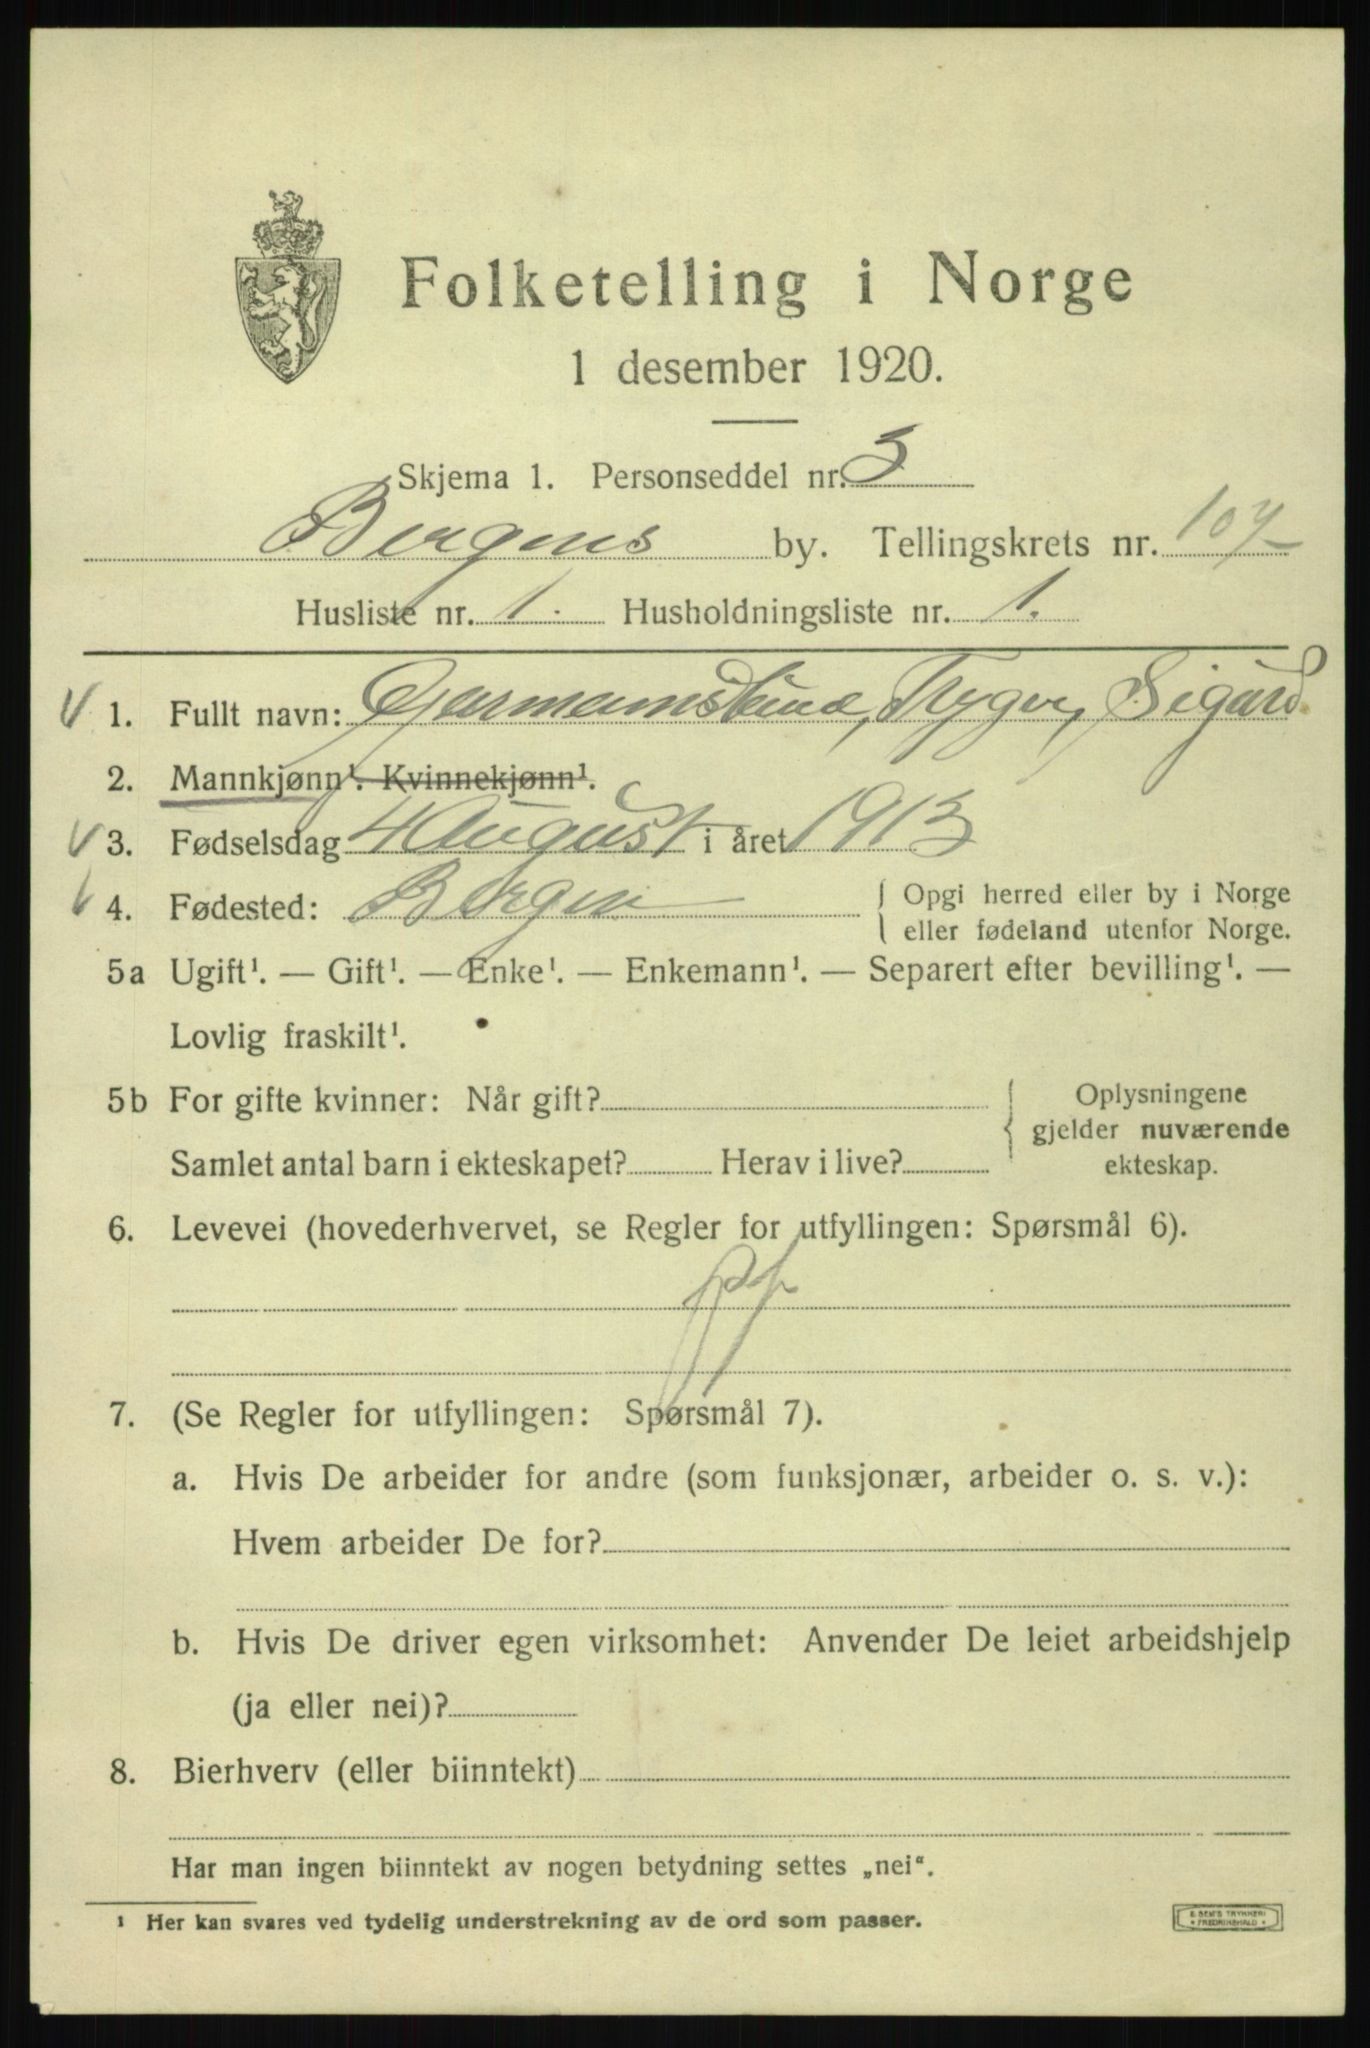 Folketelling i Norge
1 desember 1920.
Skjema 1. Personseddel nr. 3
Bergens by. Tellingskrets nr. 107
Husliste nr. 1. Husholdningsliste nr. 1.
1. Fullt navn: Trygve, Sigurd
2. Mannkjønn¹. Kvinnekjønn¹.
3. Fødselsdag 4 August i året 1913
4. Fødested: Bergen
Opgi herred eller by i Norge
eller fødeland utenfor Norge.
5a Ugift¹. — Gift¹. — Enke¹. — Enkemann¹. — Separert efter bevilling¹. —
Lovlig fraskilt¹.
5b For gifte kvinner: Når gift?
Samlet antal barn i ekteskapet? Herav i live?
Oplysningene
gjelder nuværende
ekteskap.
6. Levevei (hovederhvervet, se Regler for utfyllingen: Spørsmål 6).
7. (Se Regler for utfyllingen: Spørsmål 7).
a. Hvis De arbeider for andre (som funksjonær, arbeider o. s. v.):
Hvem arbeider De for?
b. Hvis De driver egen virksomhet: Anvender De leiet arbeidshjelp
(ja eller nei)?
8. Bierhverv (eller biinntekt)
Har man ingen biinntekt av nogen betydning settes „nei“.
¹ Her kan svares ved tydelig understrekning av de ord som passer.
E SEM'S TRYKKERI
• FREDRIKSHALD •